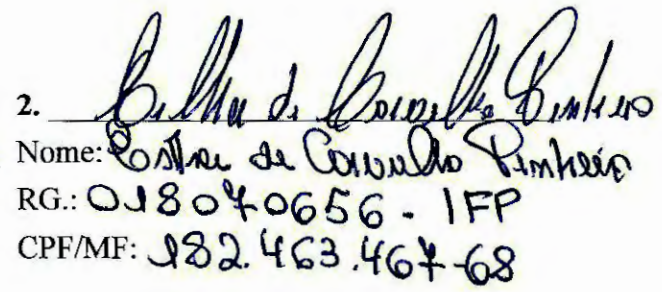 2. de Carvalho Pinheiro
Nome: Esther de Carvalho Pinheiro
RG.: 018070656 - IFP
CPF/MF: 182.463.467-68